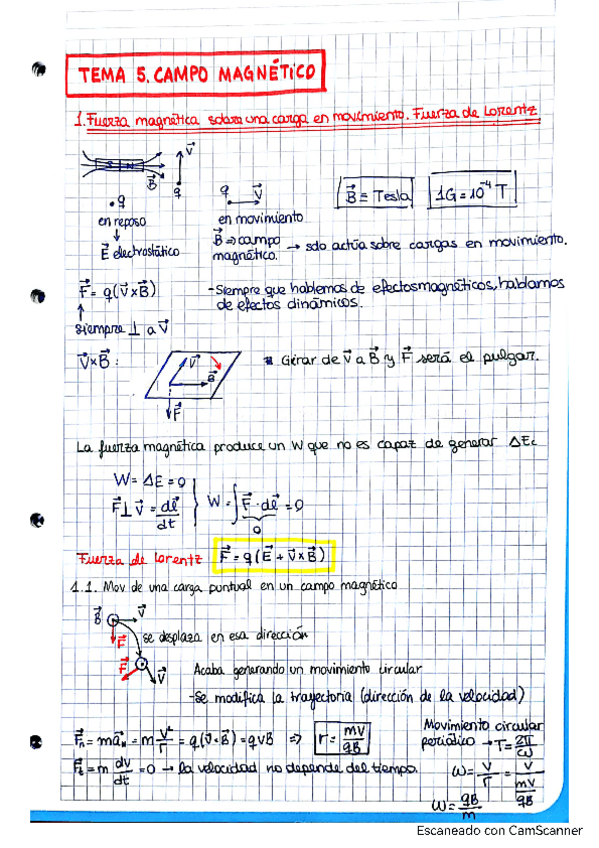 TEMA 5. CAMPO MAGNÉTICO
1. Fuerza magnética sobre una carga en movimiento. Fuerza de Lorentz
V⃗
B⃗
q
• q
en reposo
↓
E⃗ electrostático
q V⃗
en movimiento
B⃗ ⇒ campo magnético. → solo actúa sobre cargas en movimiento.
B⃗ = Tesla
1G = 10⁻⁴ T
F⃗ = q(V⃗ x B⃗)
↑
siempre ⊥ a V⃗
- Siempre que hablemos de efectos magnéticos, hablamos
de efectos dinámicos.
V⃗ x B⃗ :
V⃗
B⃗
F⃗
Girar de V⃗ a B⃗ y F⃗ será el pulgar.
La fuerza magnética produce un W que no es capaz de generar ΔEc
W = ΔE = 0
F⃗ ⊥ V⃗ = dl⃗/dt
W = ∫ F⃗ · dl⃗ = 0
0
Fuerza de Lorentz F⃗ = q(E⃗ + V⃗ x B⃗)
1.1. Mov. de una carga puntual en un campo magnético
B⃗ V⃗
F⃗
se desplaza en esa dirección
F⃗
V⃗
Acaba generando un movimiento circular
- Se modifica la trayectoria (dirección de la velocidad)
F⃗n = ma⃗n = m v²/r = q(V⃗ · B⃗) = qvB ⇒ r = mv/qB
F⃗t = m dv/dt = 0 → la velocidad no depende del tiempo.
Movimiento circular
periódico → T = 2π/ω
ω = v/r = v/(mv/qB)
ω = qB/m
Escaneado con CamScanner